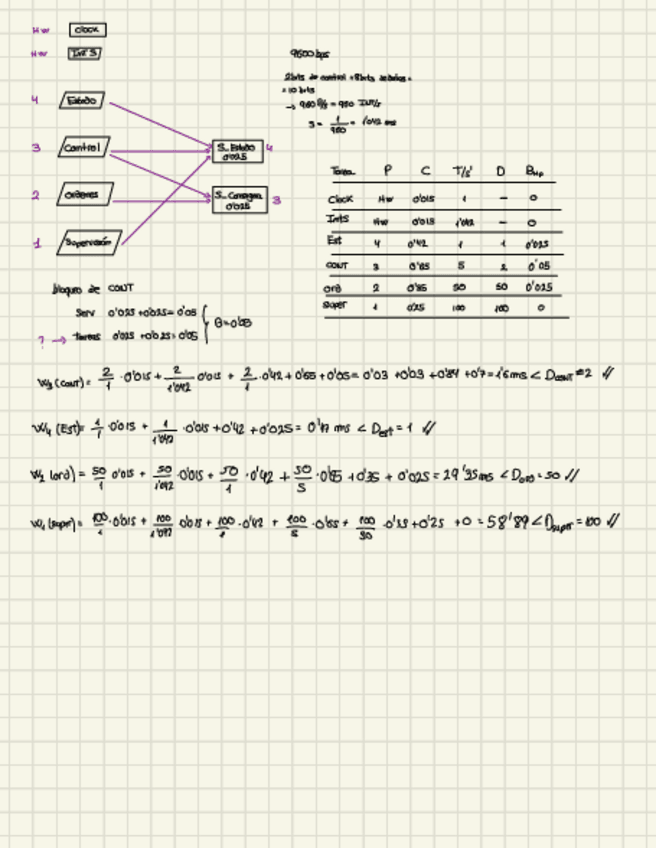 HW Clock
HW Int S
4 Estado
3 Control
2 Ordenes
1 Supervisión
S_Estado 0'025 4
S_Consigna 0'025 3
9600 bps
2 bits de control +8bits de datos =
= 10 bits
→ 960 P/s = 960 INT/s
S = 1/960 = 1'042 ms
Tarea P C T/S D B
Clock HW 0'015 1 — 0
Ints HW 0'015 1'042 — 0
Est 4 0'42 1 1 0'025
CONT 3 0'65 5 2 0'05
Ord 2 0'35 50 50 0'025
Super 1 0'25 100 100 0
bloqueo de CONT
Serv 0'025 +0'025= 0'05
B=0'05
? → tareas 0'025 +0'025=0'05
W3 (CONT) = 2/1 · 0'015 + 2/1'042 0'015 + 2/1 · 0'42 + 0'65 + 0'05 = 0'03 +0'03 +0'84 +0'7 = 1'6 ms < DCONT = 2 //
W4 (Est)= 1/1 · 0'015 + 1/1'042 · 0'015 +0'42 +0'025 = 0'47 ms < Dest = 1 //
W2 (ord) = 50/1 0'015 + 50/1'042 · 0'015 + 50/1 · 0'42 + 50/5 · 0'65 + 0'35 + 0'025 = 29'35 ms < Dord = 50 //
W1 (super) = 100/1 · 0'015 + 100/1'042 0'015 + 100/1 · 0'42 + 100/5 · 0'65 + 100/50 · 0'35 +0'25 +0 = 58'89 < Dsuper = 100 //